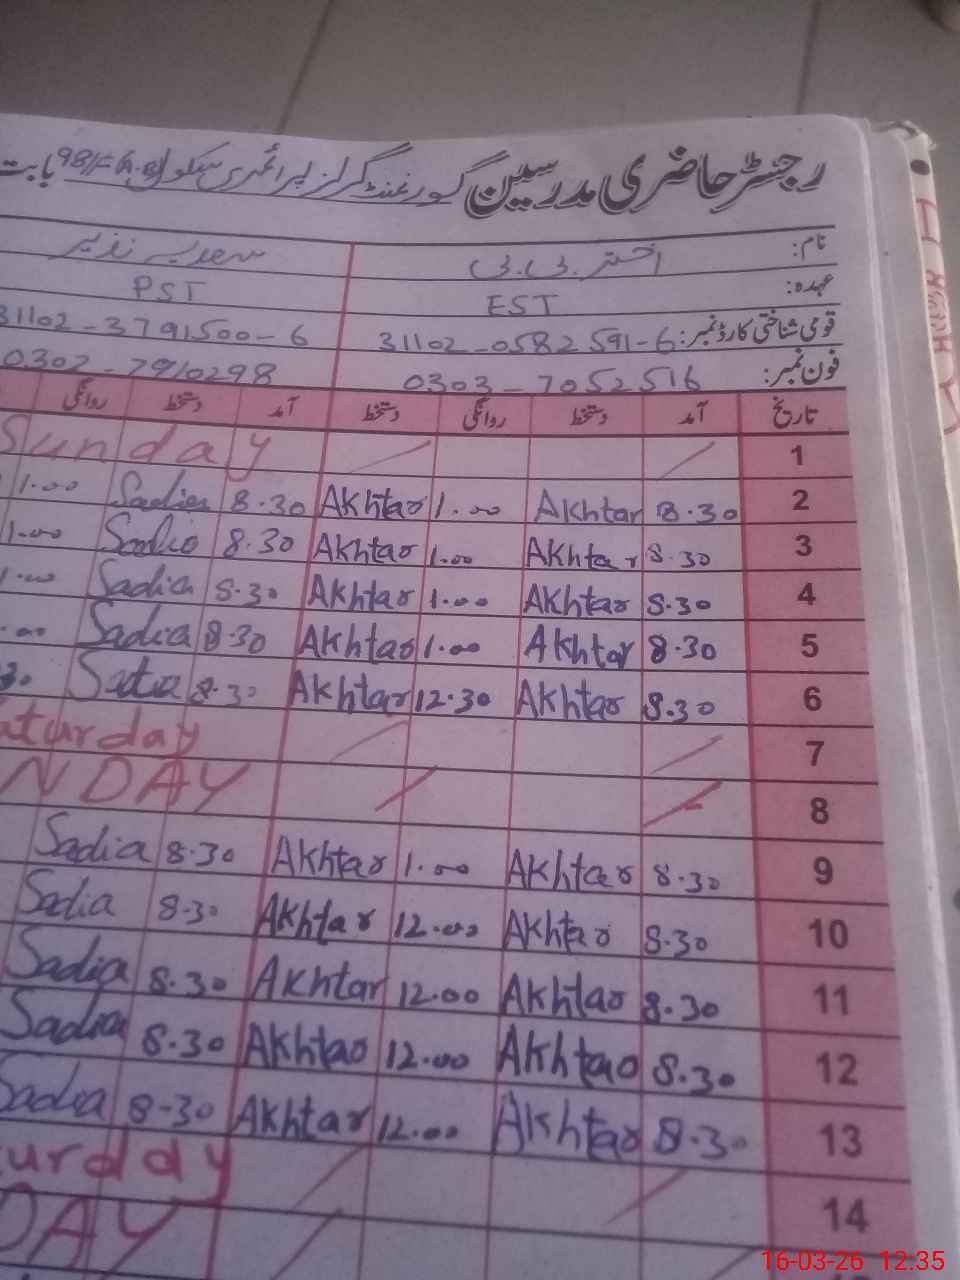 رجسٹر حاضری مدرسین گورنمنٹ گرلز پرائمری سکول 98/F (A.B) بابت
نام: اختر بی بی سعدیہ نذیر
عہدہ: EST PST
قومی شناختی کارڈ نمبر: 31102-0582591-6 31102-3791500-6
فون نمبر: 0303-7052516 0302-7910298
تاریخ آمد دستخط روانگی دستخط آمد دستخط روانگی
1 Sunday
2 8.30 Akhtar 1.00 Akhtar 8.30 Sadia 1.00
3 8.30 Akhtar 1.00 Akhtar 8.30 Sadia 1.00
4 8.30 Akhtar 1.00 Akhtar 8.30 Sadia 1.00
5 8.30 Akhtar 1.00 Akhtar 8.30 Sadia .00
6 8.30 Akhtar 12.30 Akhtar 8.30 Sadia 30
7 aturday
8 NDAY
9 8.30 Akhtar 1.00 Akhtar 8.30 Sadia
10 8.30 Akhtar 12.00 Akhtar 8.30 Sadia
11 8.30 Akhtar 12.00 Akhtar 8.30 Sadia
12 8.30 Akhtar 12.00 Akhtar 8.30 Sadia
13 8.30 Akhtar 12.00 Akhtar 8.30 Sadia
14 urday
DAY
16-03-26 12:35